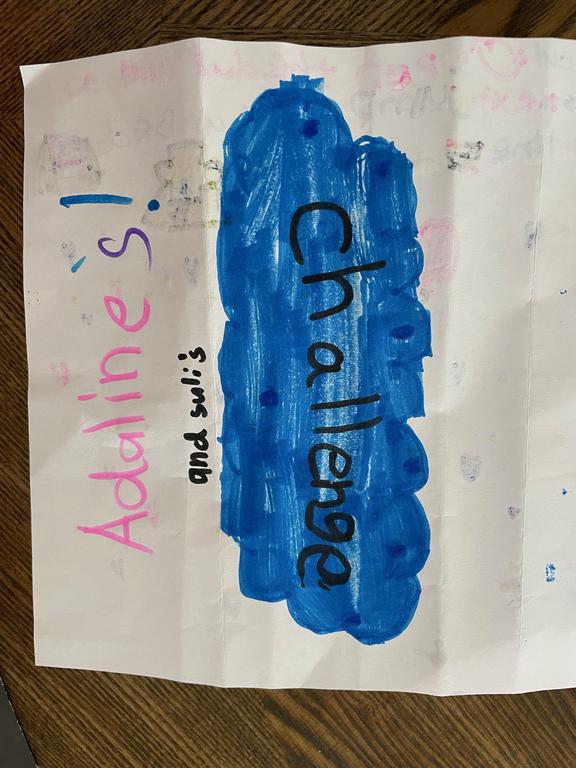 Adaline's!
and suli's
challenge